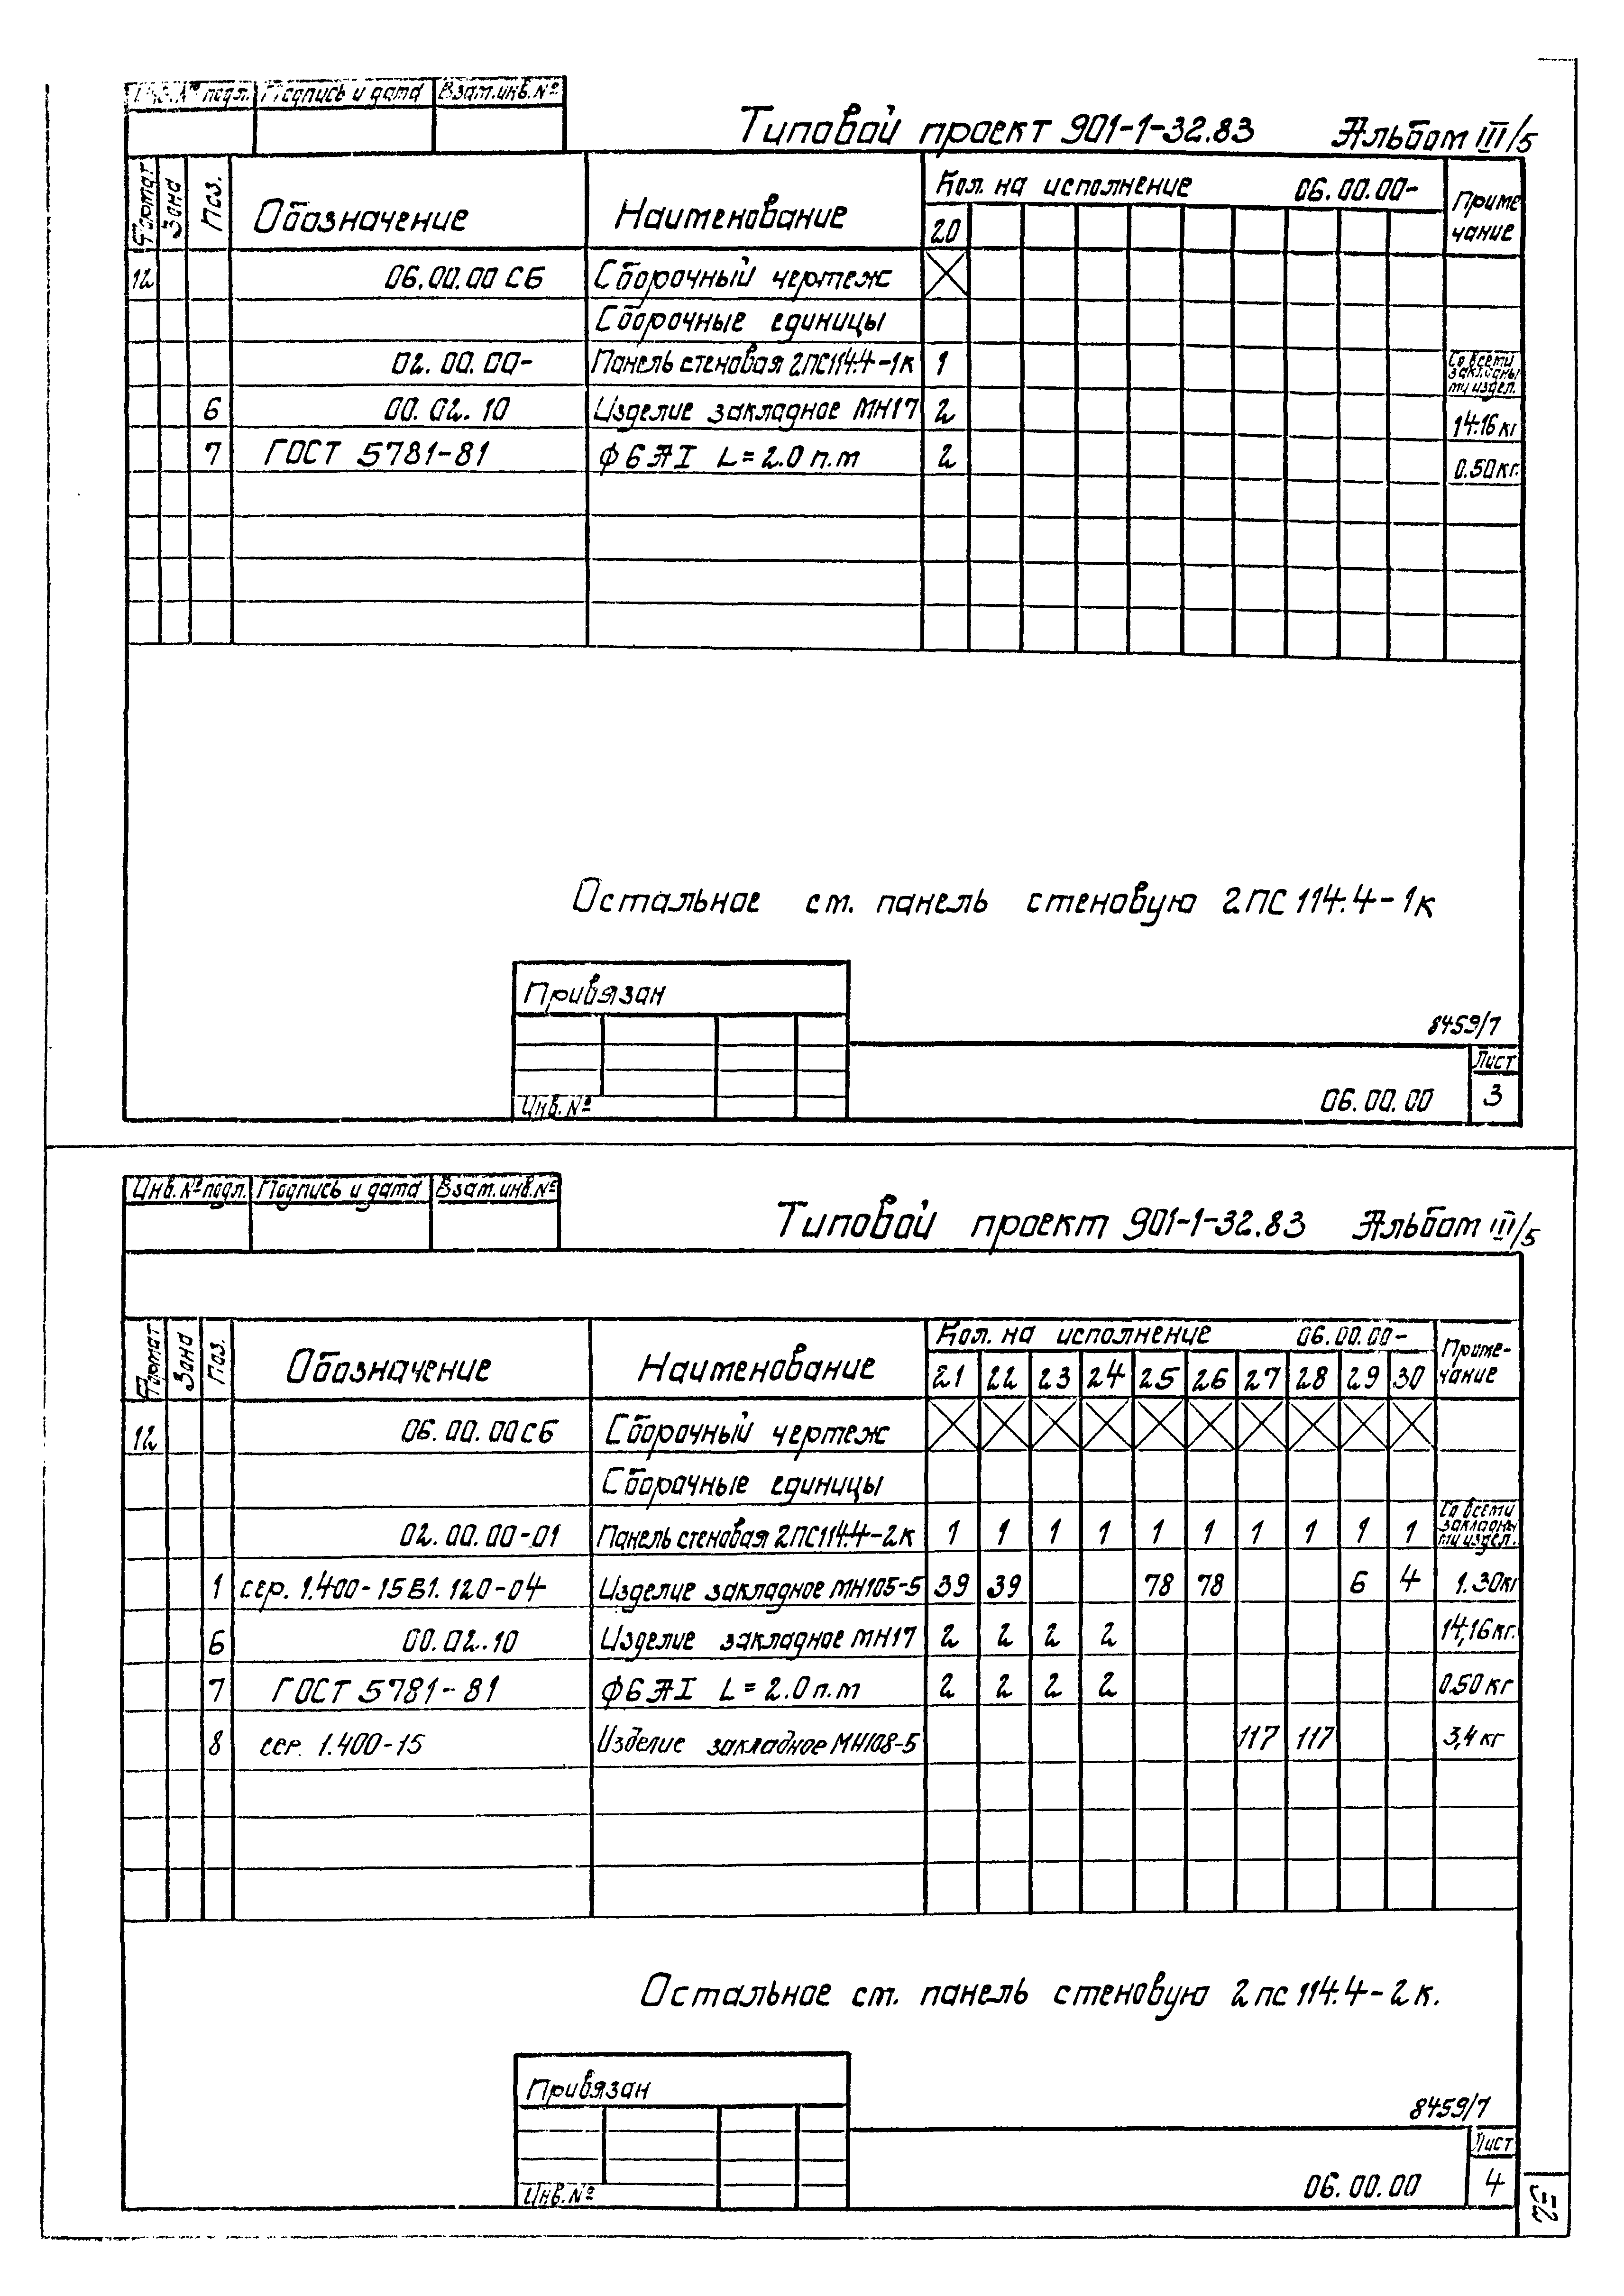 Инв. № подл. Подпись и дата Взам. инв. №
Типовой проект 901-1-32.83 Альбом III/5
Формат Зона Поз. Обозначение Наименование Кол. на исполнение 06.00.00- Приме
чание
20
12 06.00.00 СБ Сборочный чертеж
Сборочные единицы
02.00.00- Панель стеновая 2ПС114.4-1к 1 Со всеми
закладны
ми издел.
6 00.02.10 Изделие закладное МН17 2 14.16 кг
7 ГОСТ 5781-81 ф6АI L=2.0 п.м 2 0.50 кг.
Остальное см. панель стеновую 2ПС 114.4-1к
Привязан
8459/7
Лист
Инв. №
06.00.00 3
Инв. № подл. Подпись и дата Взам. инв. №
Типовой проект 901-1-32.83 Альбом III/5
Формат Зона Поз. Обозначение Наименование Кол. на исполнение 06.00.00- Приме-
чание
21 22 23 24 25 26 27 28 29 30
12 06.00.00 СБ Сборочный чертеж
Сборочные единицы
02.00.00-01 Панель стеновая 2ПС114.4-2к 1 1 1 1 1 1 1 1 1 1 Со всеми
закладны
ми издел.
1 сер. 1.400-15В1.120-04 Изделие закладное МН105-5 39 39 78 78 6 4 1.30 кг
6 00.02.10 Изделие закладное МН17 2 2 2 2 14,16 кг.
7 ГОСТ 5781-81 ф6АI L=2.0 п.м 2 2 2 2 0.50 кг
8 сер. 1.400-15 Изделие закладное МН108-5 117 117 3,4 кг
Остальное см. панель стеновую 2пс 114.4-2к.
Привязан
8459/7
Лист
Инв. №
06.00.00 4